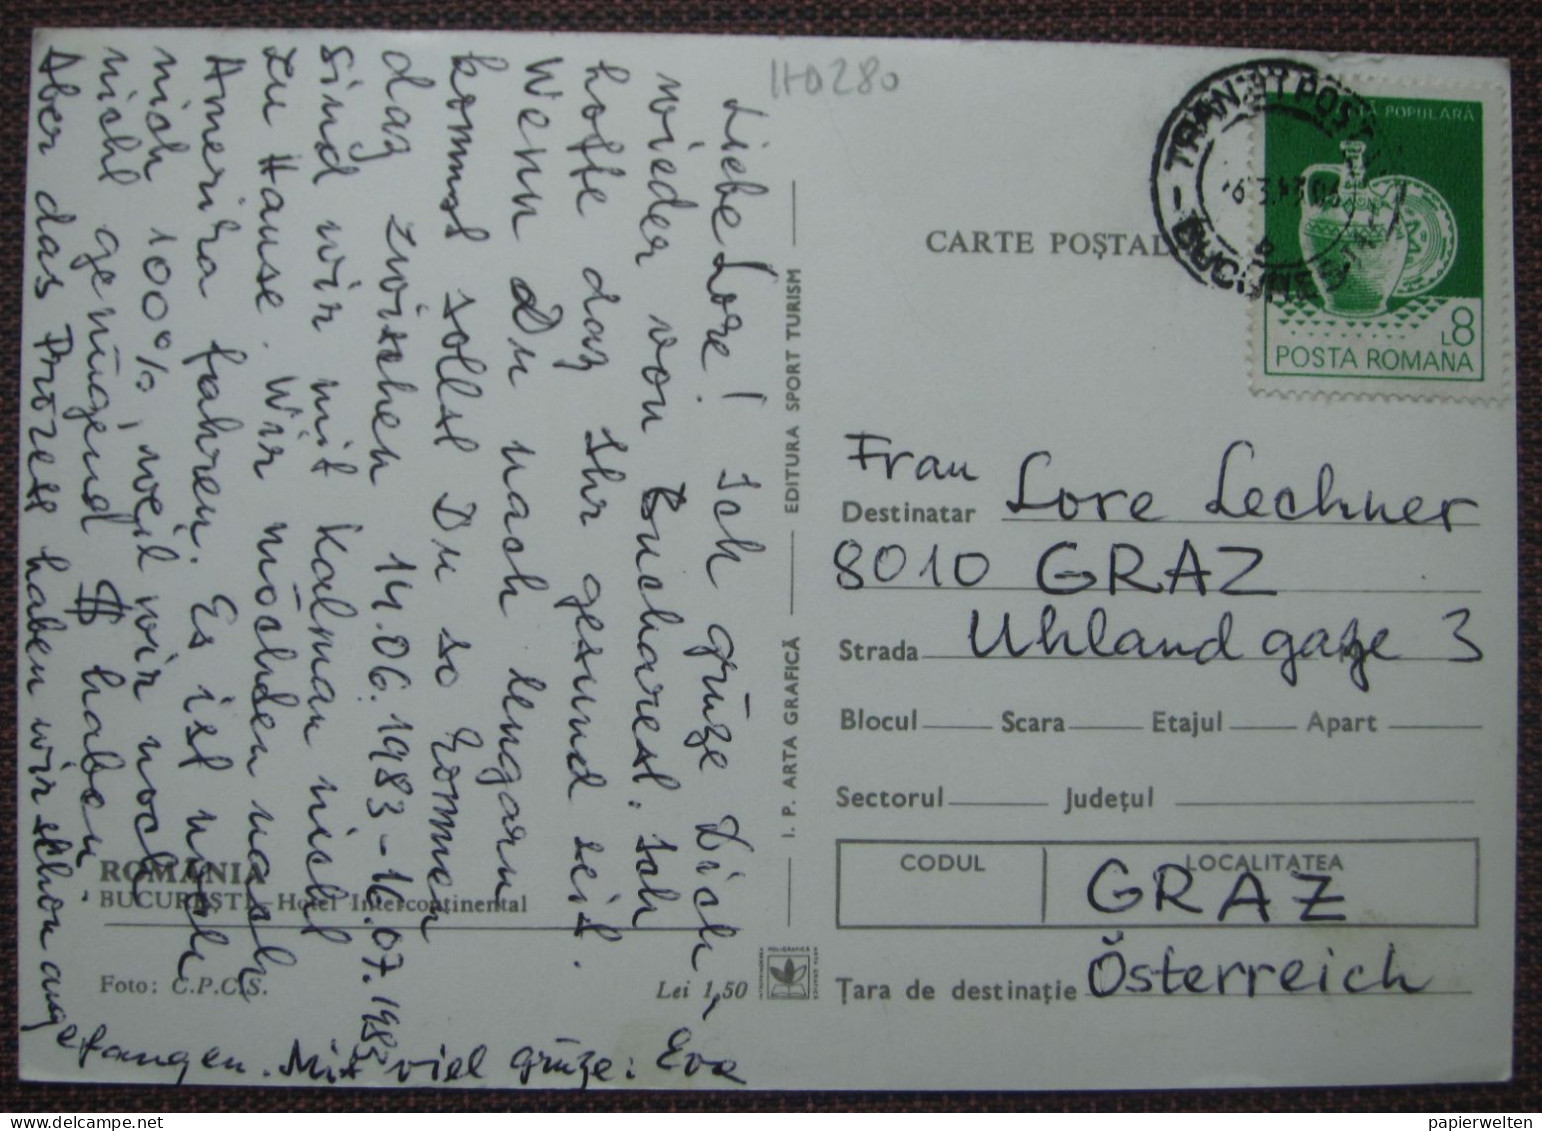 Liebe Lore! Ich grüze Dich
wieder von Bucharest. Ich
hoffe daz Ihr gesund seit.
Wenn Du nach Ungarn
kommst sollst Du so kommen
daz zwischen 14.06.1983-16.07.1983
sind wir mit Kálmán nicht
zu Hause. Wir möchden nach
Amerika fahren. Es ist noch
nich 100%, weil wir noch
nicht genügend $ haben.
Aber das Prozess haben wir schon ange-
fangen. Mit viel grüze: Eva
HO280
ROMÂNIA
BUCUREȘTI - Hotel Intercontinental
Foto: C.P.C.S.
Lei 1,50
I. P. ARTA GRAFICĂ
EDITURA SPORT TURISM
CARTE POȘTAL
TRANZIT POST
BUCUREȘTI
POPULARĂ
L8
POSTA ROMANA
Frau
Destinatar Lore Lechner
8010 GRAZ
Strada Uhlandgaze 3
Blocul Scara Etajul Apart
Sectorul Județul
CODUL LOCALITATEA
GRAZ
Țara de destinație Österreich
papierwelten